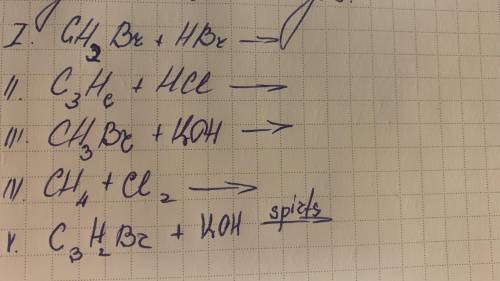 I. CH₂Br + HBr →
II. C₃H₆ + HCl →
III. CH₃Br + KOH →
IV. CH₄ + Cl₂ →
V. C₃H₂Br + KOH spirts →